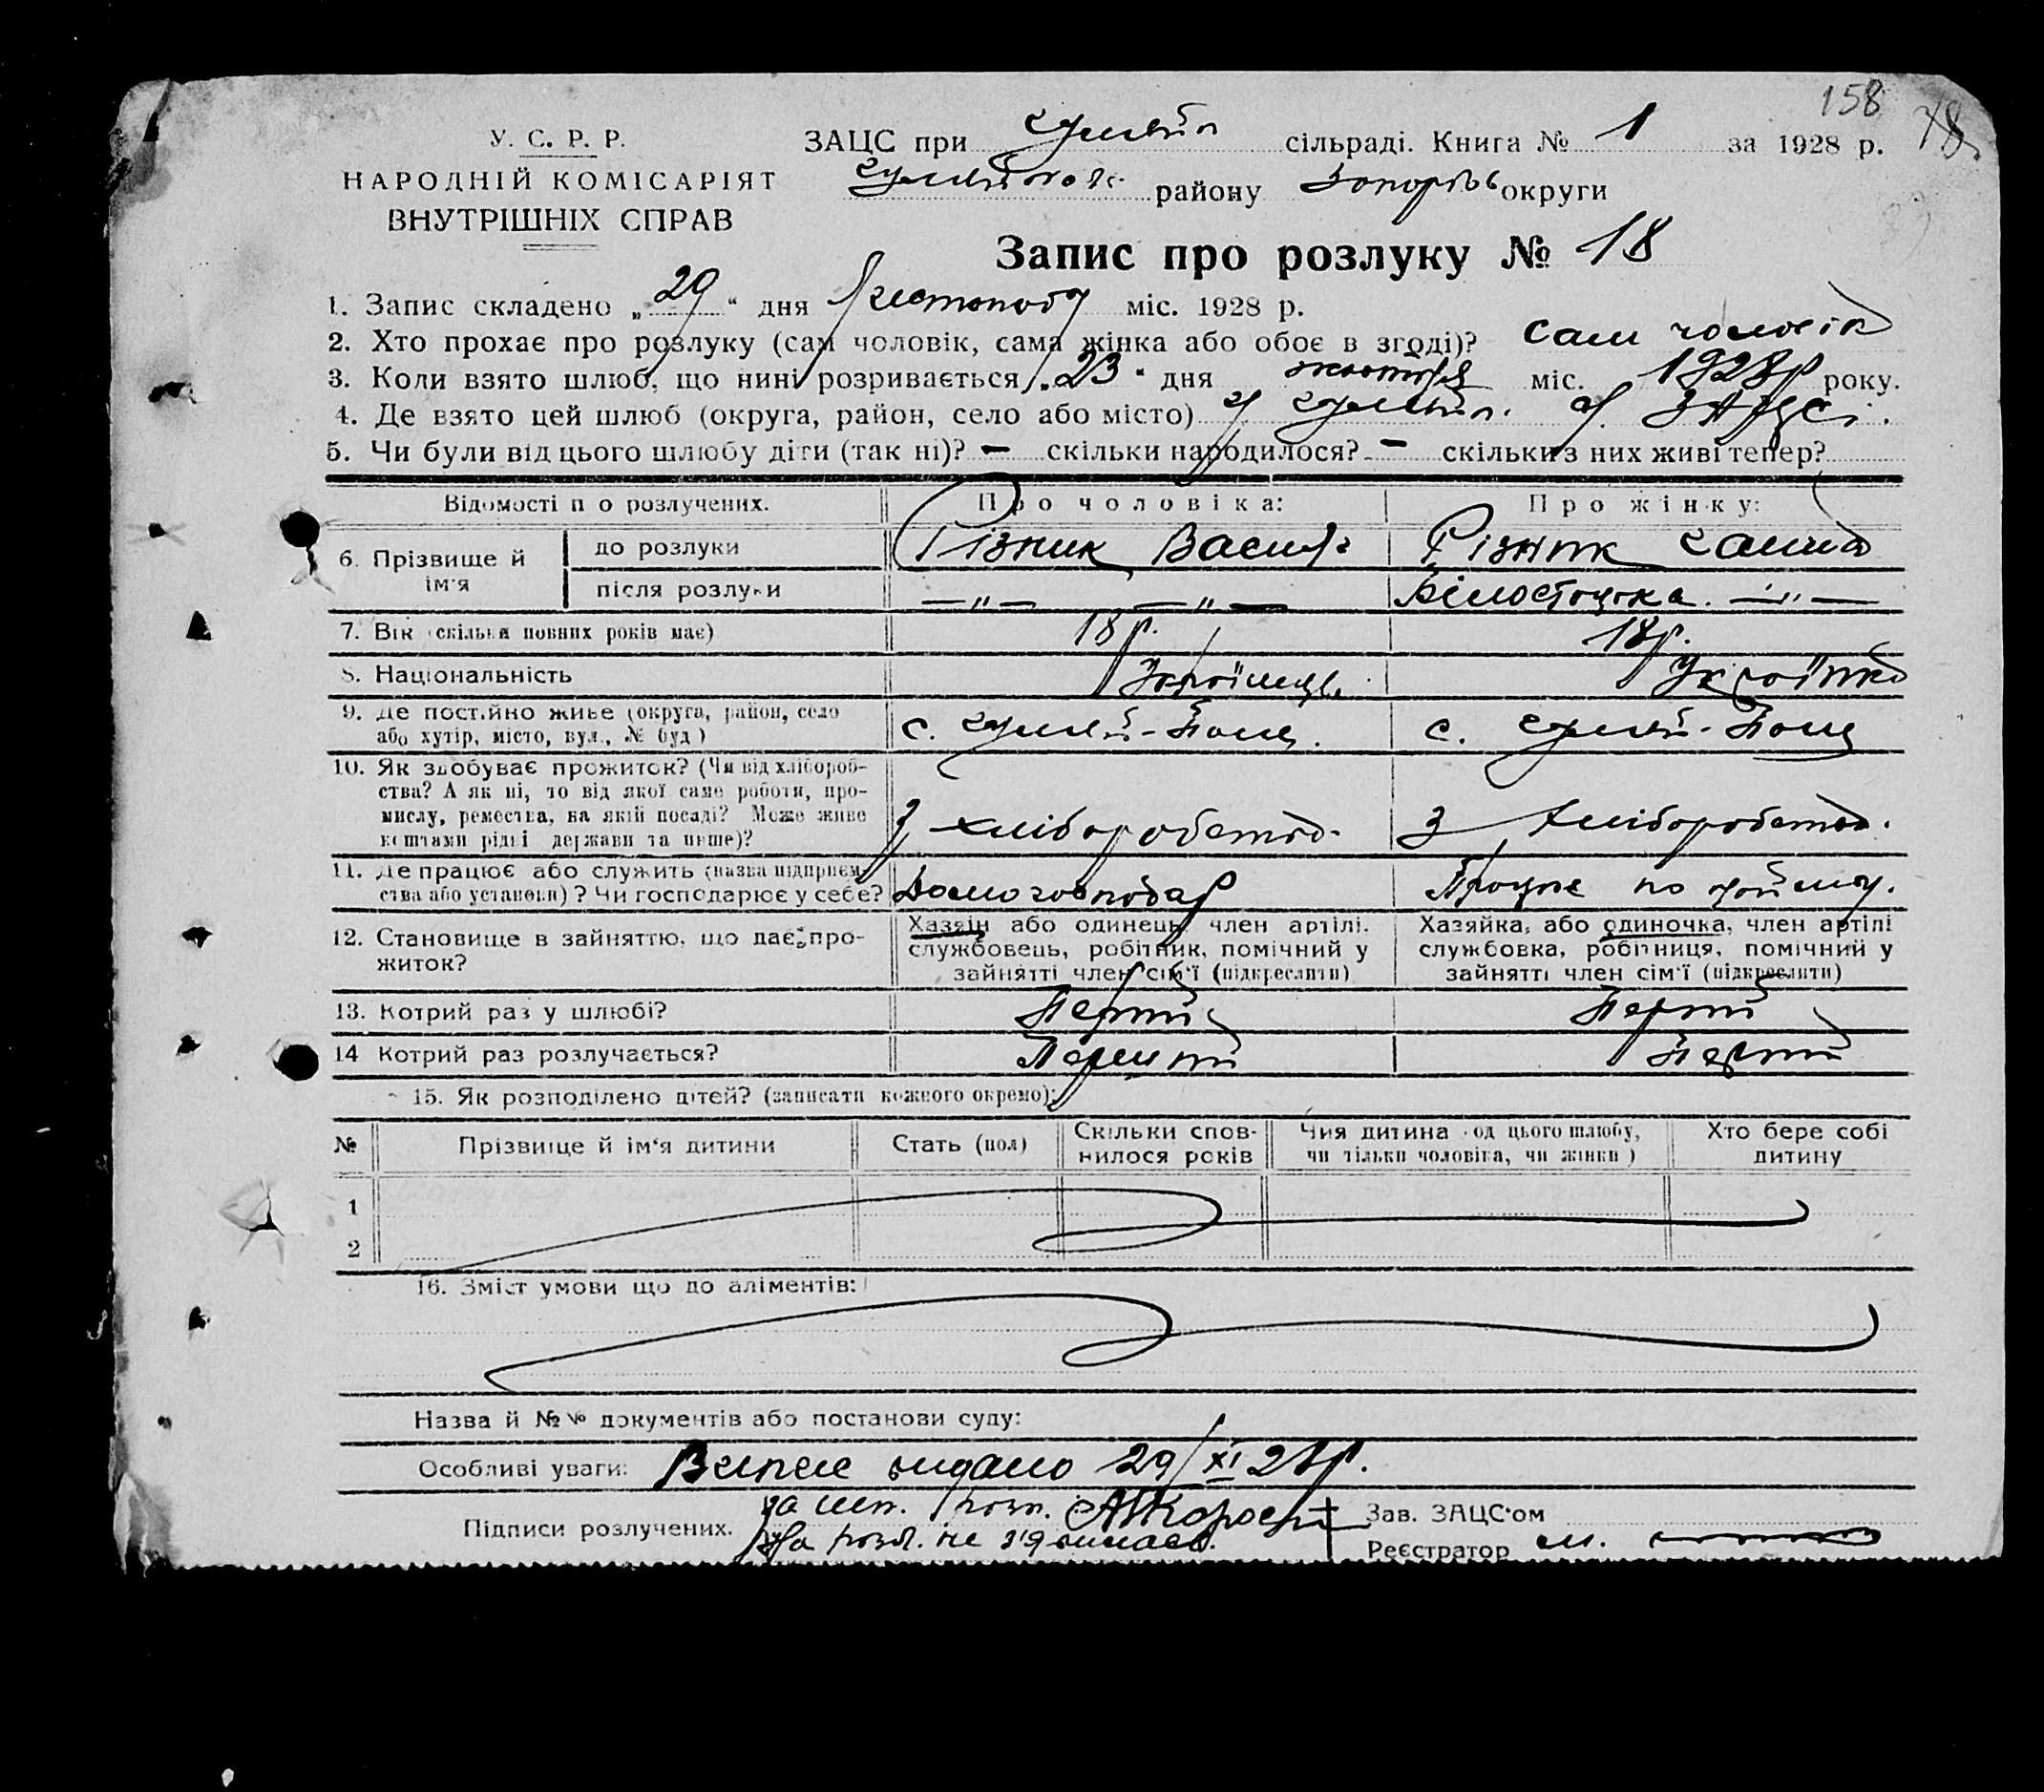 158
У. С. Р. Р.
НАРОДНІЙ КОМІСАРІЯТ
ВНУТРІШНІХ СПРАВ
ЗАЦС при Гуляйп сільраді. Книга № 1 за 1928 р.
району округи
Запис про розлуку № 18
1. Запис складено „29“ дня Листопада міс. 1928 р.
2. Хто прохає про розлуку (сам чоловік, сама жінка або обоє в згоді)? сам чоловік
3. Коли взято шлюб, що нині розривається „23“ дня жовтня міс. 1928р року.
4. Де взято цей шлюб (округа, район, село або місто) У Гуляйп. ЗАЦСі.
5. Чи були від цього шлюбу діти (так ні)? — скільки народилося? — скільки з них живі тепер?
Відомості п о розлучених. Про чоловіка: Про жінку:
6. Прізвище й ім'я до розлуки Різник Василь Різник Галина
після розлуки —„— —„— Білостоцька. —„—
7. Вік (скільки повних років має) 18 р. 18 р.
8. Національність Українець. Українка
9. Де постійно живе (округа, район, село або хутір, місто, вул., № буд) с. Гуляй-Поле. с. Гуляй-Поле
10. Як здобуває прожиток? (Чи від хлібороб-
ства? А як ні, то від якої саме роботи, про-
мислу, ремества, на якій посаді? Може живе
коштами рідні держави та инше)? З хліборобства. З хліборобства.
11. Де працює або служить (назва підприєм-
ства або установи)? Чи господарює у себе? Домогосподар Працює по найму.
12. Становище в зайняттю, що дає про-
житок?
Хазяїн або одинець, член артілі.
службовець, робітник, помічний у
зайнятті член сім'ї (підкреслити)
Хазяйка, або одиночка, член артілі
службовка, робітниця, помічний у
зайнятті член сім'ї (підкреслити)
13. Котрий раз у шлюбі? Перший Перший
14 Котрий раз розлучається? Перший Перший
15. Як розподілено дітей? (записати кожного окремо):
№ Прізвище й ім'я дитини Стать (пол) Скільки спов-
нилося років Чия дитина (од цього шлюбу,
чи тільки чоловіка, чи жінки) Хто бере собі
дитину
1
2
16. Зміст умови що до аліментів:
Назва й №№ документів або постанови суду:
Особливі уваги: Витяг видано 29/XI 28р.
Підписи розлучених.
на розл. не з'явилась.
Зав. ЗАЦС'ом
Реєстратор